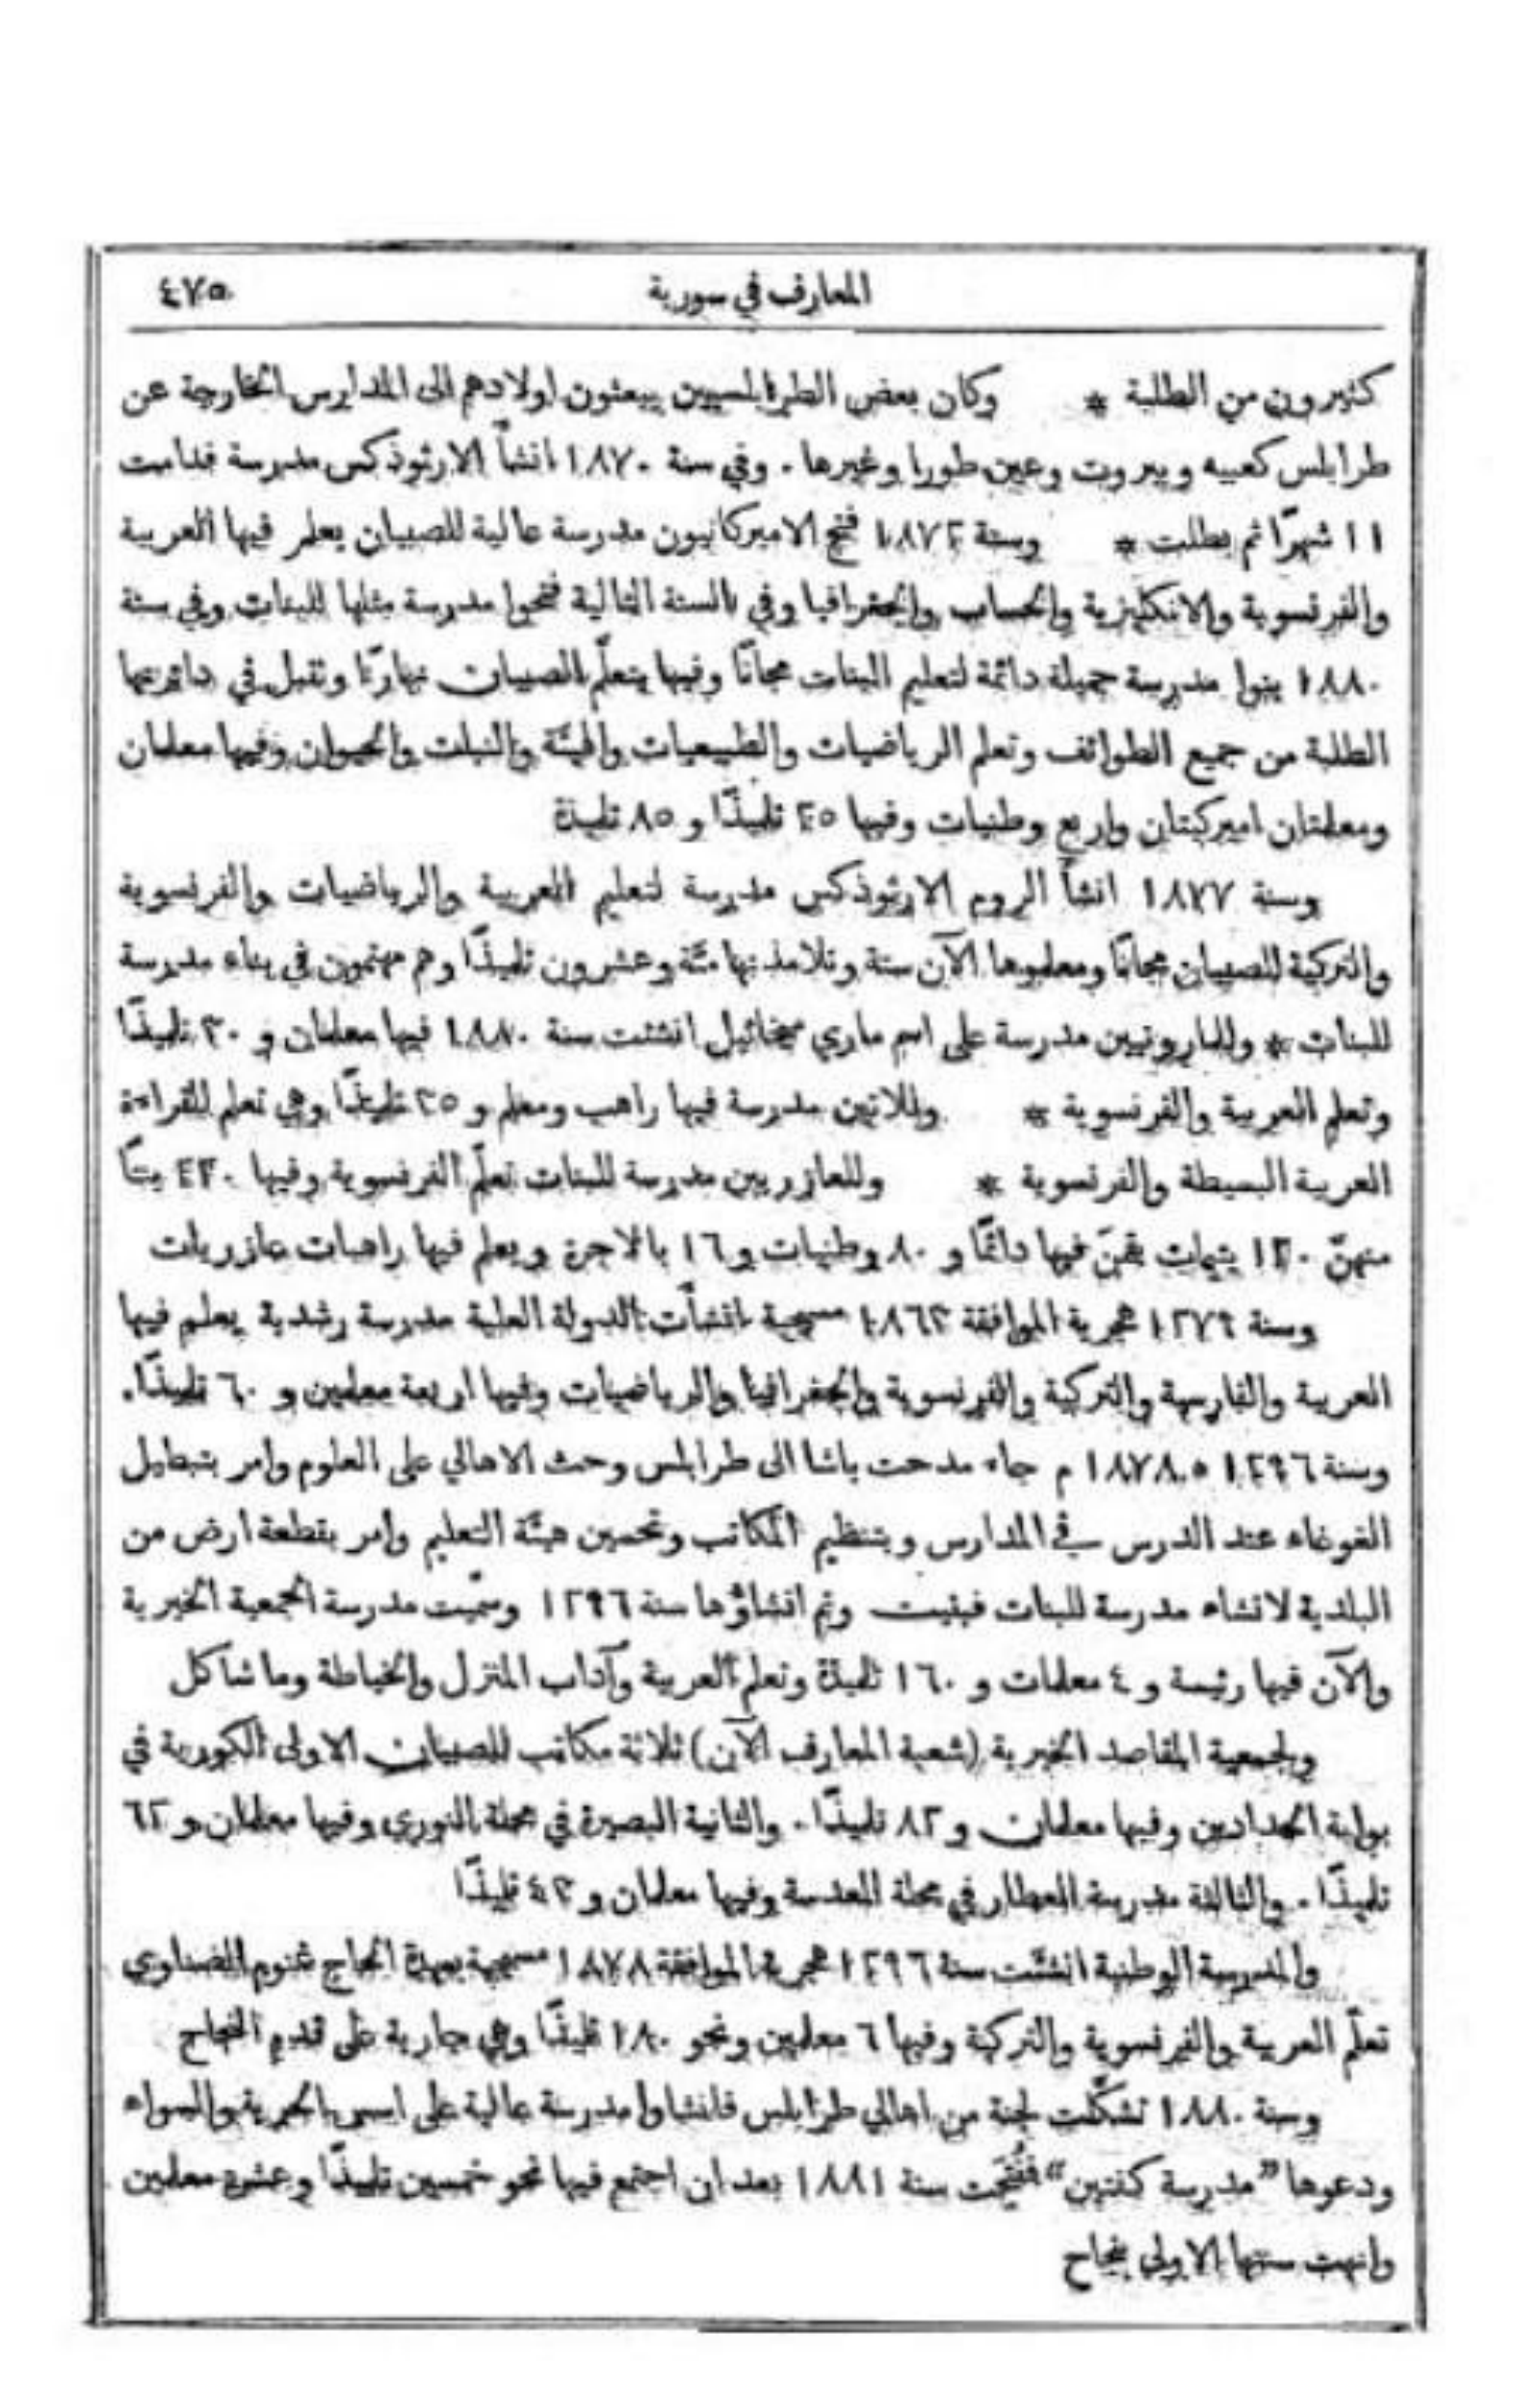 المعارف في سورية ٤٧٥
كثيرون من الطلبة * وكان بعض الطرابلسيين يبعثون اولادهم الى المدارس الخارجة عن
طرابلس كعبيه وبيروت وعين طورا وغيرها . وفي سنة ١٨٧٠ انشأ الارثوذكس مدرسة فدامت
١١ شهرًا ثم بطلت * وسنة ١٨٧٢ فتح الاميركانيون مدرسة عالية للصبيان يعلم فيها العربية
والفرنسوية والانكليزية والحساب والجغرافيا وفي السنة التالية فتحوا مدرسة مثلها للبنات وفي سنة
١٨٨٠ بنوا مدرسة جميلة دائمة لتعليم البنات مجانًا وفيها يتعلّم الصبيان نهارًا وتقبل في دائرتها
الطلبة من جميع الطوائف وتعلم الرياضيات والطبيعيات والهيئة والنبات والحيوان وفيها معلمان
ومعلمتان اميركيتان واربع وطنيات وفيها ٢٥ تلميذًا و ٨٥ تلميذة
وسنة ١٨٧٧ انشأ الروم الارثوذكس مدرسة لتعليم العربية والرياضيات والفرنسوية
والتركية للصبيان مجانًا ومعلموها الآن ستة وتلامذتها مئة وعشرون تلميذًا وهم مهتمون في بناء مدرسة
للبنات * وللمارونيين مدرسة على اسم ماري ميخائيل انشئت سنة ١٨٨٠ فيها معلمان و ٣٠ تلميذًا
وتعلم العربية والفرنسوية * وللاتين مدرسة فيها راهب ومعلم و ٢٥ تلميذًا وهي تعلم القراءة
العربية البسيطة والفرنسوية * وللعازريين مدرسة للبنات تعلّم الفرنسوية وفيها بنتًا
منهنّ ١٢٠ يتيمات يقمنَ فيها دائمًا و ٨٠ وطنيات و ١٦ بالاجرة ويعلم فيها راهبات عازريات
وسنة ١٢٧٩ هجرية الموافقة ١٨٦٢ مسيحية انشأت الدولة العلية مدرسة رشدية يعلم فيها
العربية والفارسية والتركية والفرنسوية والجغرافيا والرياضيات وفيها اربعة معلمين و ٦٠ تلميذًا .
وسنة ١٢٩٦ ه ١٨٧٨ م جاء مدحت باشا الى طرابلس وحث الاهالي على العلوم وامر بتبطيل
الغوغاء عند الدرس في المدارس وبتنظيم المكاتب وتحسين هيئة التعليم وامر بقطعة ارض من
البلدية لانشاء مدرسة للبنات فبنيت وتم انشاؤها سنة ١٢٩٦ وسمّيت مدرسة الجمعية الخيرية
والآن فيها رئيسة و ٤ معلمات و ١٦٠ تلميذة وتعلم العربية وآداب المنزل والخياطة وما شاكل
ولجمعية المقاصد الخيرية (شعبة المعارف الآن) ثلاثة مكاتب للصبيان الاولى الكورية في
بوابة الحدادين وفيها معلمان و ٨٢ تلميذًا . والثانية البصيرة في محلة النوري وفيها معلمان و ٦٢
تلميذًا . والثالثة مدرسة العطار في محلة العدسة وفيها معلمان و ٤٢ تلميذًا
والمدرسة الوطنية انشئت سنة ١٢٩٦ هجرية الموافقة ١٨٧٨ مسيحية بعهدة الحاج غنوم الضناوي
تعلّم العربية والفرنسوية والتركية وفيها ٦ معلمين ونحو ١٨٠ تلميذًا وهي جارية على قدم النجاح
وسنة ١٨٨٠ تشكّلت لجنة من اهالي طرابلس فانشاوا مدرسة عالية على اسس الحرية والسواء
ودعوها "مدرسة كفتين" ففُتِحَت سنة ١٨٨١ بعد ان اجتمع فيها نحو خمسين تلميذًا وعشرة معلمين
وانتهت سنتها الاولى بنجاح